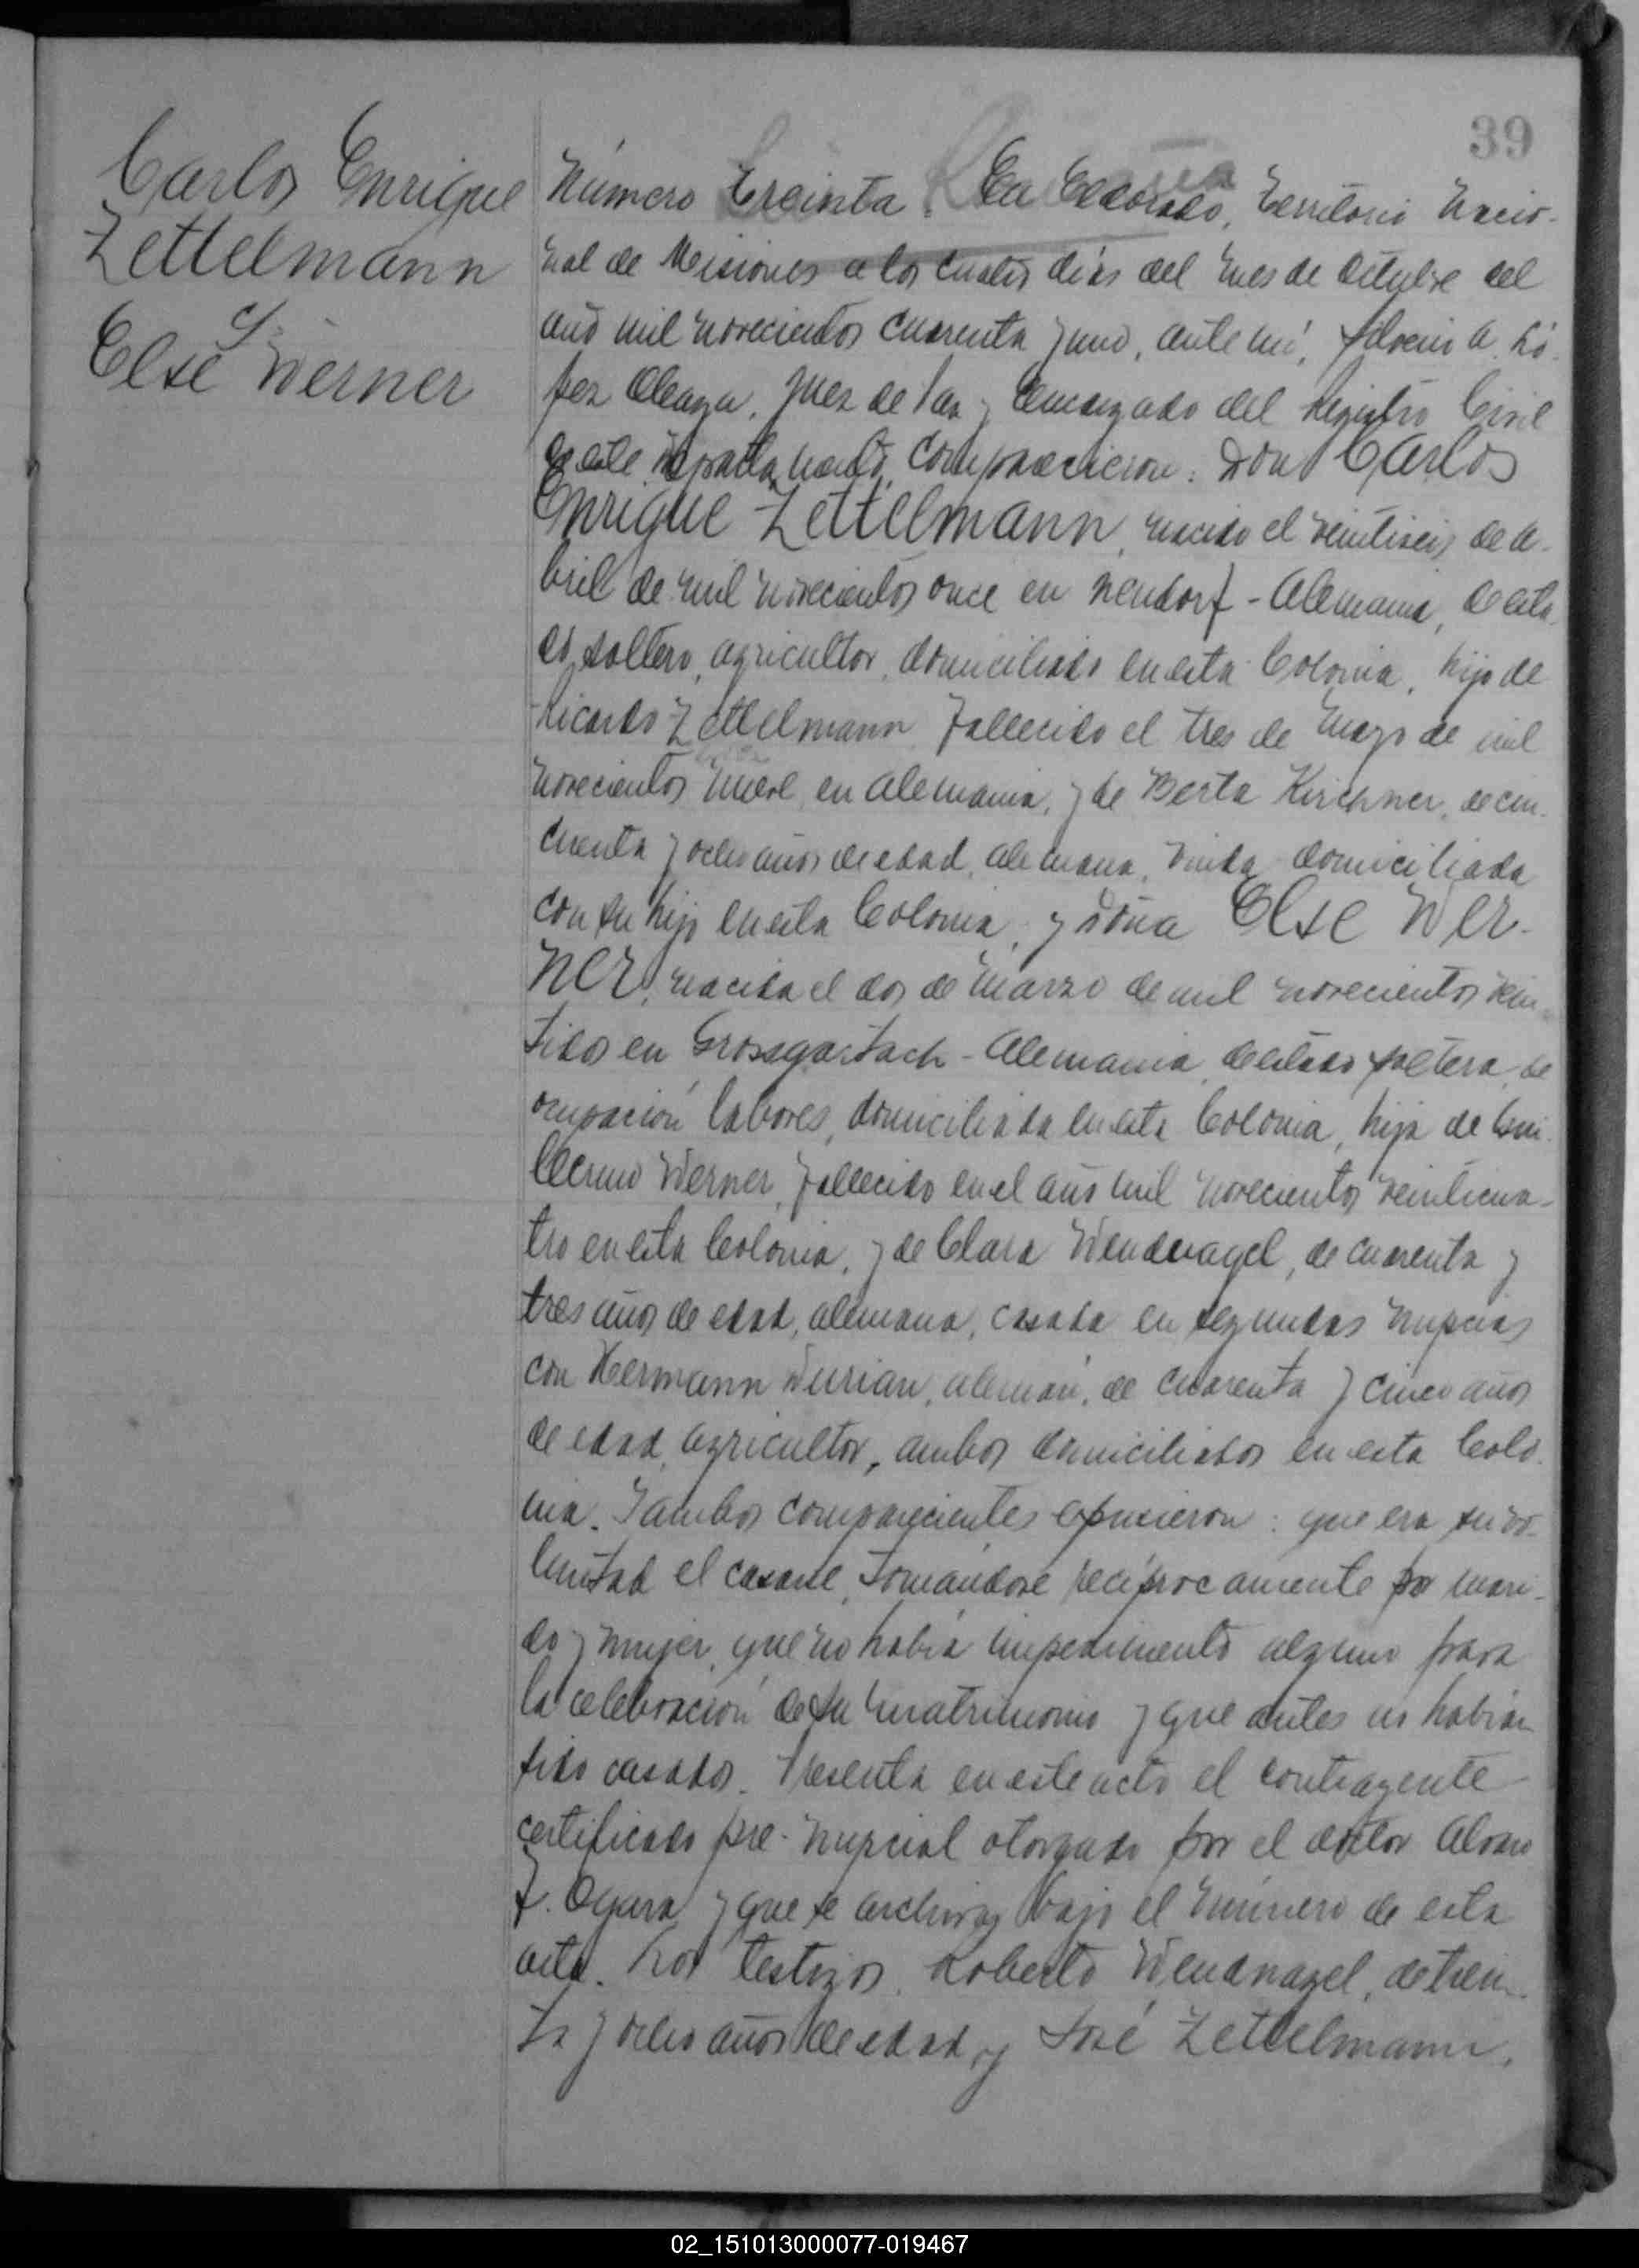 39
Carlos Enrique
Zettelmann
c/.
Else Werner
Número Treinta. En Eldorado, Territorio Nacio-
nal de Misiones a los cuatro días del mes de Octubre del
año mil novecientos cuarenta y uno, ante mí, A. Ló-
pez Juez de Paz y Encargado del Registro Civil
de este Departamento, comparecieron: Don Carlos
Enrique Zettelmann, nacido el veintiseis de A-
bril de mil novecientos once en Neudorf - Alemania, de esta-
do soltero, agricultor, domiciliado en esta Colonia, hijo de
Ricardo Zettelmann fallecido el tres de Mayo de mil
novecientos nueve, en Alemania, y de Berta Kirchner, de cin-
cuenta y ocho años de edad, alemana, viuda domiciliada
con su hijo en esta Colonia, y doña Else Wer-
ner, nacida el dos de Marzo de mil novecientos vein-
tidos en Grossgartach - Alemania, de estado soltera, de
ocupación labores, domiciliada en esta Colonia, hija de Gui-
llermo Werner, fallecido en el año mil novecientos veinticua-
tro en esta Colonia, y de Clara Wendnagel, de cuarenta y
tres años de edad, alemana, casada en segundas nupcias
con Hermann Wurian, alemán, de cuarenta y cinco años
de edad, agricultor, ambos domiciliados en esta Colo-
nia. Y ambos comparecientes expusieron: que era su vo-
luntad el casarse, tomándose recíprocamente por mari-
do y mujer, que no había impedimento alguno para
la celebración de su matrimonio y que antes no habían
sido casados. Presenta en este acto el contrayente
certificado pre-nupcial otorgado por el doctor Alvaro
F. Ogara y que se archiva bajo el número de esta
acta. Los testigos, Roberto Wendnagel, de trein-
ta y ocho años de edad, y José Zettelmann,
02_151013000077-019467